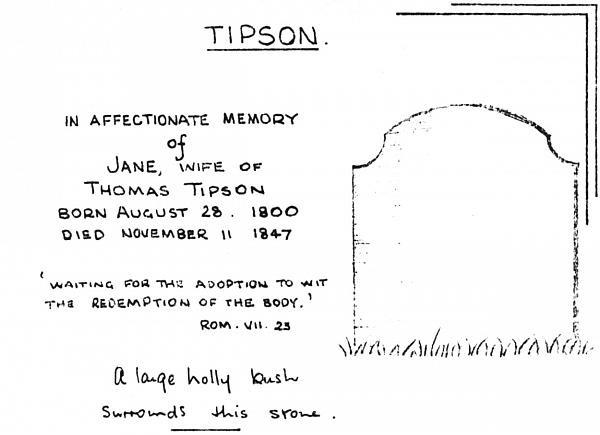 TIPSON.
IN AFFECTIONATE MEMORY
of
JANE, WIFE OF
THOMAS TIPSON
BORN AUGUST 28. 1800
DIED NOVEMBER 11 1847
'WAITING FOR THE ADOPTION TO WIT
THE REDEMPTION OF THE BODY.'
ROM. VII. 23
A large holly bush
Surrounds this stone.